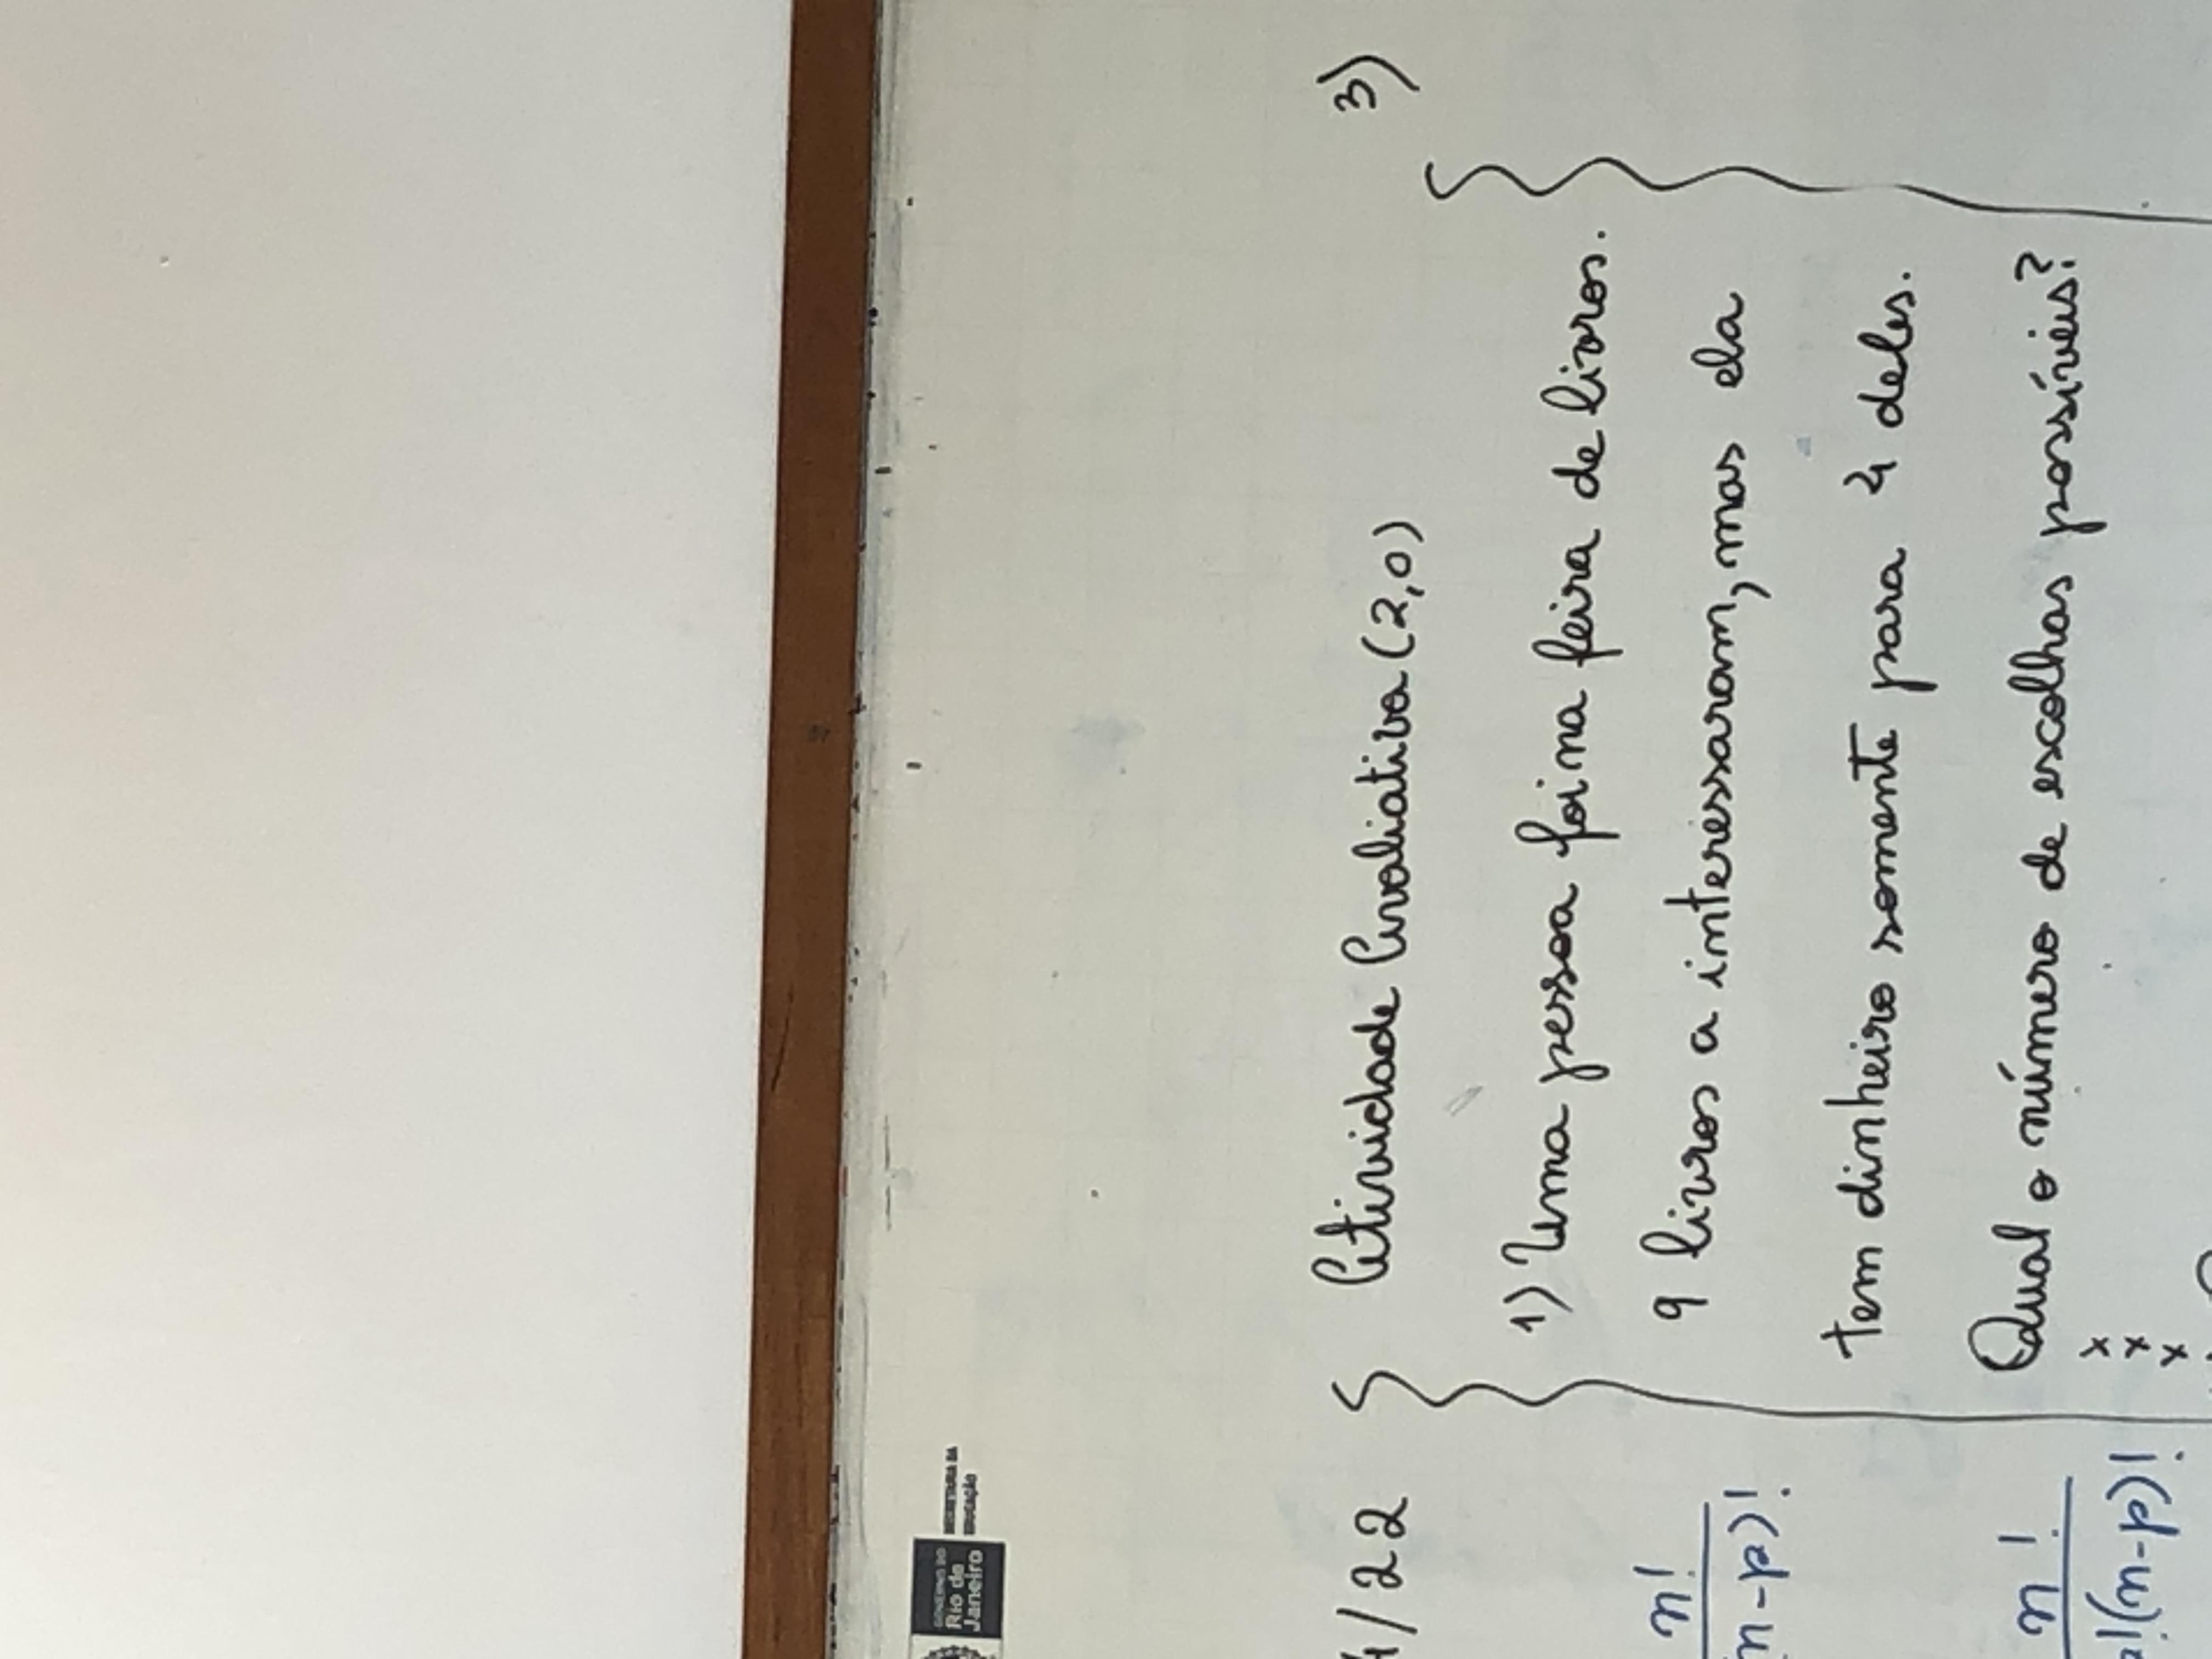 GOVERNO DO
Rio de
Janeiro
SECRETARIA DA
EDUCAÇÃO
4/22
n!
(n-p)!
n!
p!(n-p)!
Atividade Avaliativa (2,0)
1) Uma pessoa foi na feira de livros.
9 livros a interessaram, mas ela
tem dinheiro somente para 4 deles.
Qual o número de escolhas possívies?
x
x
x
3)